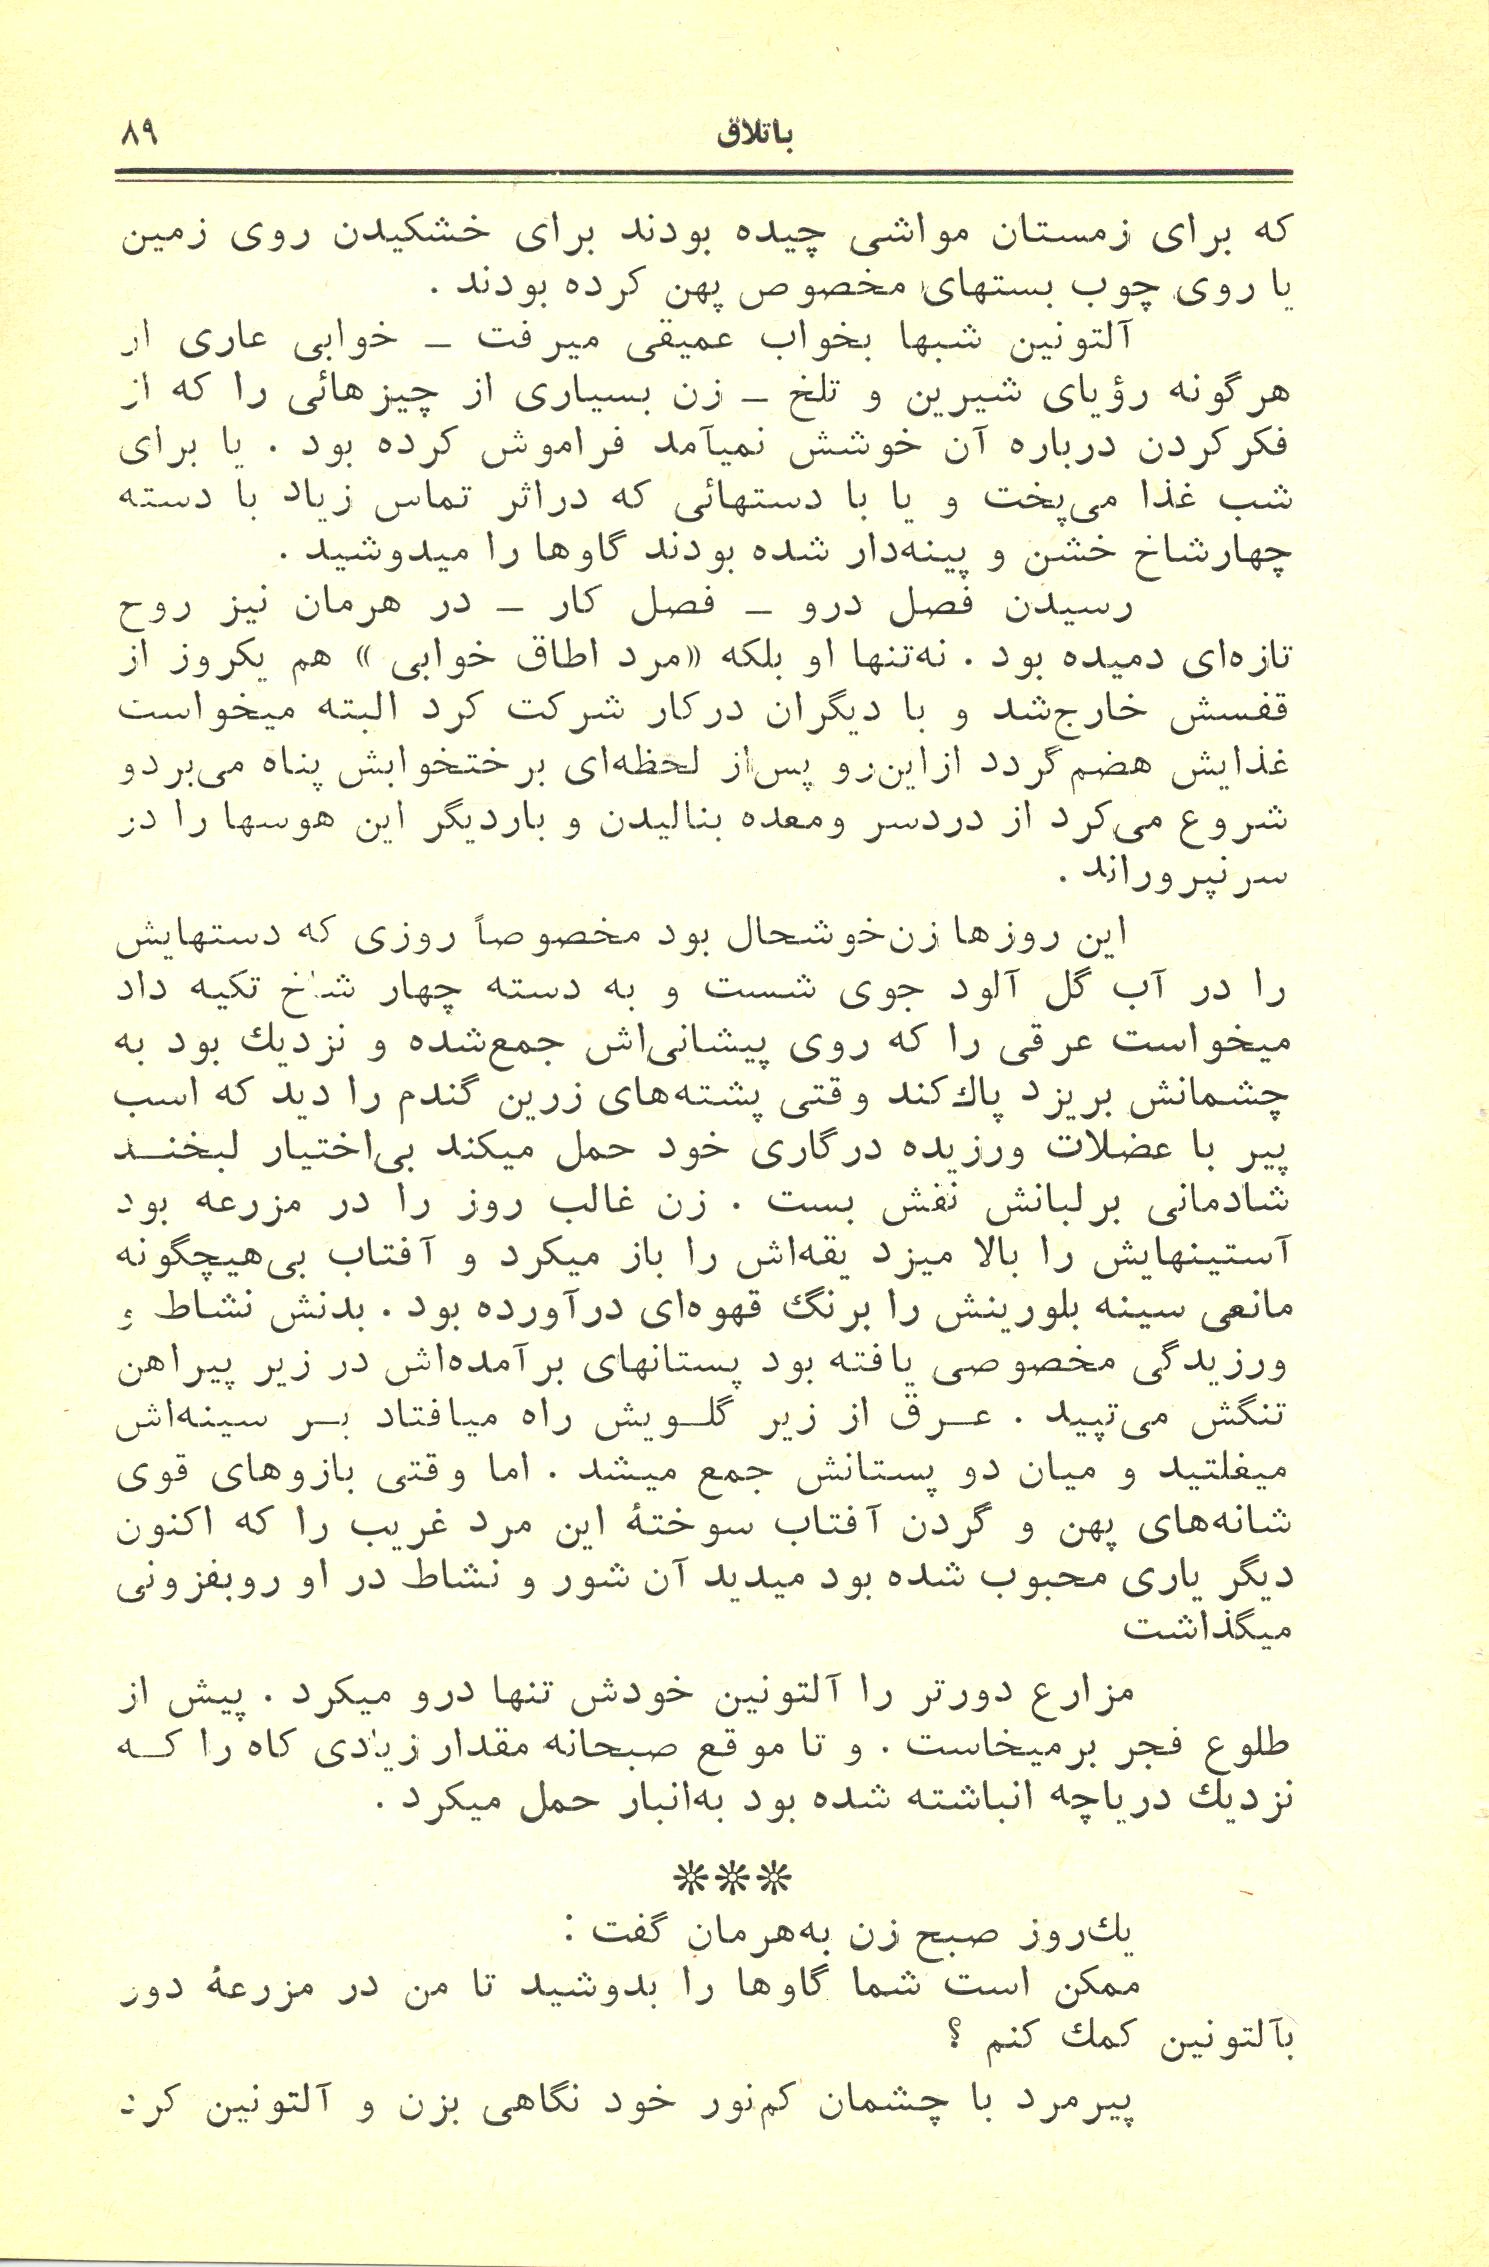 باتلاق
۸۹
که برای زمستان مواشی چیده بودند برای خشکیدن روی زمین
یا روی چوب بستهای مخصوص پهن کرده بودند .
آلتونین شبها بخواب عمیقی میرفت ـ خوابی عاری از
هرگونه رؤیای شیرین و تلخ ـ زن بسیاری از چیزهائی را که از
فکر کردن درباره آن خوشش نمیآمد فراموش کرده بود . یا برای
شب غذا می‌پخت و یا با دستهائی که دراثر تماس زیاد با دسته
چهارشاخ خشن و پینه‌دار شده بودند گاوها را میدوشید .
رسیدن فصل درو ـ فصل کار ـ در هرمان نیز روح
تازه‌ای دمیده بود . نه‌تنها او بلکه «مرد اطاق خوابی» هم یکروز از
قفسش خارج‌شد و با دیگران درکار شرکت کرد البته میخواست
غذایش هضم گردد ازاین‌رو پس‌از لحظه‌ای برختخوابش پناه می‌برد و
شروع می‌کرد از دردسر ومعده بنالیدن و باردیگر این هوسها را در
سر نپروراند .
این روزها زن‌خوشحال بود مخصوصاً روزی که دستهایش
را در آب گل آلود جوی شست و به دسته چهار شاخ تکیه داد
میخواست عرقی را که روی پیشانی‌اش جمع‌شده و نزدیك بود به
چشمانش بریزد پاك‌کند وقتی پشته‌های زرین گندم را دید که اسب
پیر با عضلات ورزیده درگاری خود حمل میکند بی‌اختیار لبخنـد
شادمانی برلبانش نقش بست . زن غالب روز را در مزرعه بود
آستینهایش را بالا میزد یقه‌اش را باز میکرد و آفتاب بی‌هیچگونه
مانعی سینه بلورینش را برنگ قهوه‌ای درآورده بود . بدنش نشاط و
ورزیدگی مخصوصی یافته بود پستانهای برآمده‌اش در زیر پیراهن
تنگش می‌تپید . عـرق از زیر گلـویش راه میافتاد بـر سینه‌اش
میغلتید و میان دو پستانش جمع میشد . اما وقتی بازوهای قوی
شانه‌های پهن و گردن آفتاب سوختهٔ این مرد غریب را که اکنون
دیگر یاری محبوب شده بود میدید آن شور و نشاط در او روبفزونی
میگذاشت
مزارع دورتر را آلتونین خودش تنها درو میکرد . پیش از
طلوع فجر برمیخاست . و تا موقع صبحانه مقدار زیادی کاه را کـه
نزدیك دریاچه انباشته شده بود به‌انبار حمل میکرد .
***
یك‌روز صبح زن به‌هرمان گفت :
ممکن است شما گاوها را بدوشید تا من در مزرعهٔ دور
بآلتونین کمك کنم ؟
پیرمرد با چشمان کم‌نور خود نگاهی بزن و آلتونین کرد